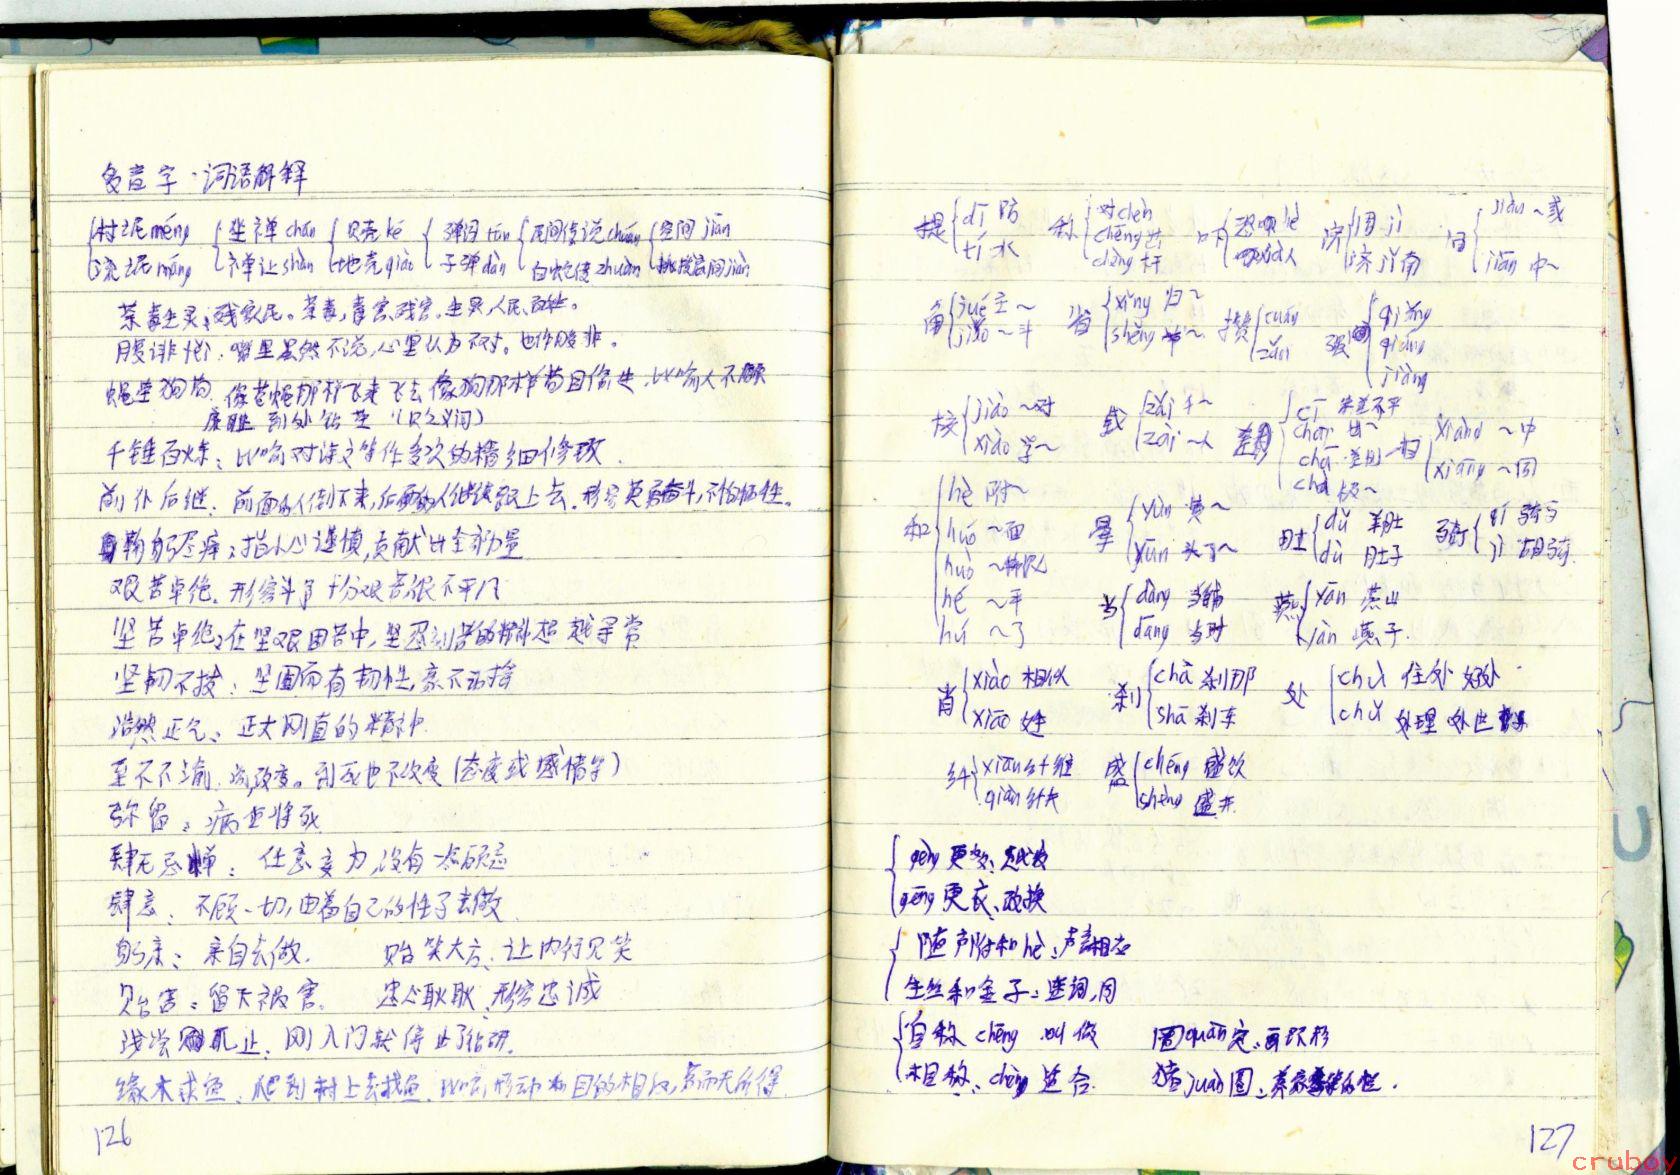 多音字·词语解释
村氓 méng 坐禅 chán 贝壳 ké 弹 tán 民间传说 chuán 空间 jiān
流氓 máng 禅让 shàn 地壳 qiào 子弹 dàn 白蛇传 zhuàn 间 jiàn
荼毒生灵：残害人民。荼毒，毒害，残害。生灵，人民、百姓。
腹诽：嘴里虽然不说，心里认为不对。也作腹非。
蝇营狗苟：像苍蝇那样飞来飞去，像狗那样苟且偷生，比喻人不顾
廉耻，到处钻营（贬义词）
千锤百炼：比喻对诗文等作多次的精细修改.
前仆后继：前面的人倒下来，后面的人继续跟上去.形容英勇奋斗，不怕牺牲。
鞠躬尽瘁：指小心谨慎，贡献出全部力量
艰苦卓绝.形容斗争十分艰苦，很不平凡
坚苦卓绝：在坚艰困苦中，坚忍刻苦的精神超越寻常
坚韧不拔：坚固而有韧性，毫不动摇
浩然正气：正大刚直的精神.
至死不渝.渝，改变。到死也不改变（态度或感情等）
弥留：病重将死
肆无忌惮：任意妄为，没有一点顾忌
肆意：不顾一切，由着自己的性子去做
躬亲：亲自去做. 贻笑大方：让内行见笑
贻害：留下祸害. 忠心耿耿：形容忠诚
浅尝辄止：刚入门就停止了钻研.
缘木求鱼：爬到树上去找鱼.比喻行动和目的相反，劳而无所得.
126
提 dī 防 称 对 chèn 吓 恐吓 hè 济 救 jì 间 jiàn ～或
tí 水 chēng 吓人 济 jǐ 南 jiān 中～
chèng 杆
角 jué 主～ 省 xǐng 归～ 攒 cuán 强 qiǎng
jiǎo ～斗 shěng zǎn qiáng
jiàng
校 jiào ～对 载 zǎi 千～ 差 cī 参差不平 相 xiàng ～中
xiào 学～ zài ～人 chāi 出～ xiāng ～同
chā 差别
chà 极～
和 hè 附～ 晕 yùn 黄～ 肚 dǔ 羊肚 骑 qí
huó ～面 yūn 头～ dù 肚子 jì
huò ～稀泥
hé ～平 当 dàng 当铺 燕 yān 燕山
hú ～了 dāng 当时 yàn 燕子.
肖 xiào 相似 刹 chà 刹那 处 chù 住处 好处
xiāo 姓 shā 刹车 chǔ 处理 处世
纤 xiān 纤维 盛 chéng 盛饭
qiàn 纤夫 shèng 盛开.
gèng 更多：越发
gēng 更衣：改换
随声附和 hè：声音相应
生丝和金子：连词，同
自称 chēng 叫做 圈 quān 定：画环形
相称：chèn 适合. 猪 juàn 圈：
127
cruboy